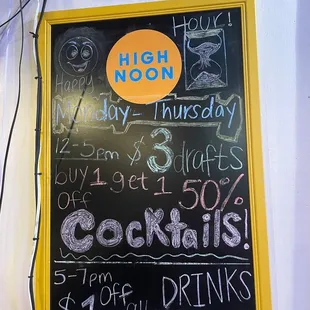 Hour!
Happy
HIGH
NOON
Monday - Thursday
12-5pm $3 drafts
buy 1 get 1 50%
Off
Cocktails!
5-7pm
DRINKS
$1 Off